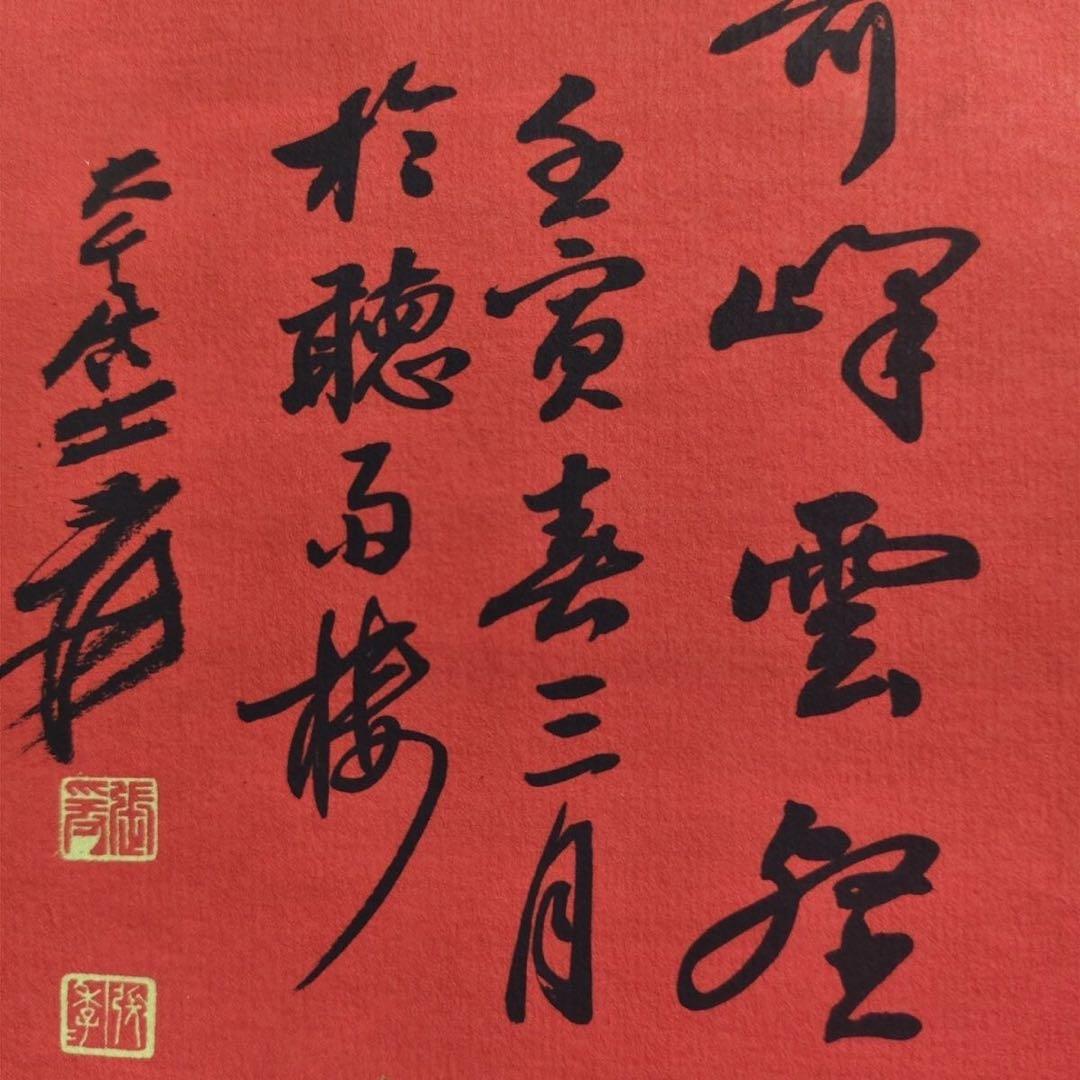 峰雲壑
壬寅春三月
於聽雨樓
大千居士爰
張爰
張季